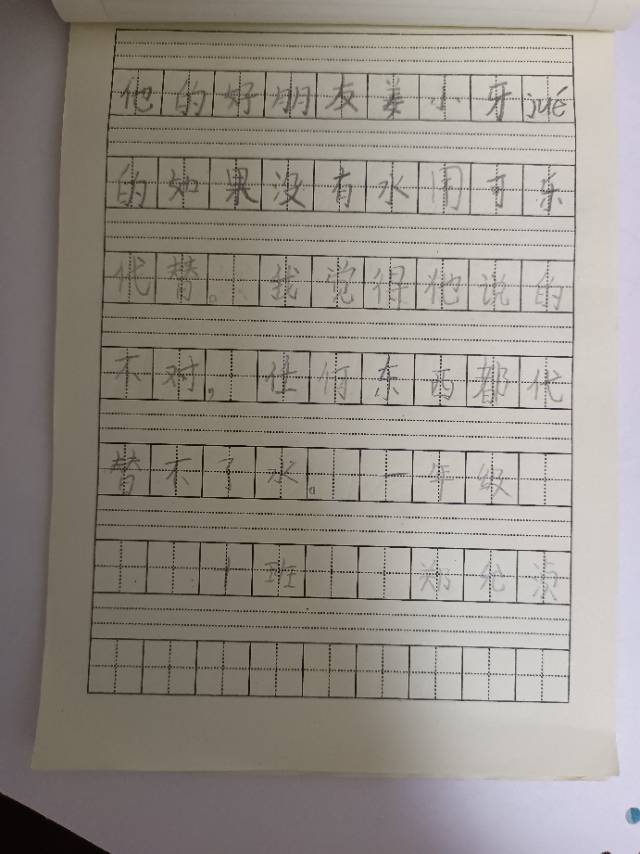 他的好朋友姜小牙jué
的如果没有水用可乐
代替。我觉得他说的
不对，任何东西都代
替不了水。一年级
班 郑允